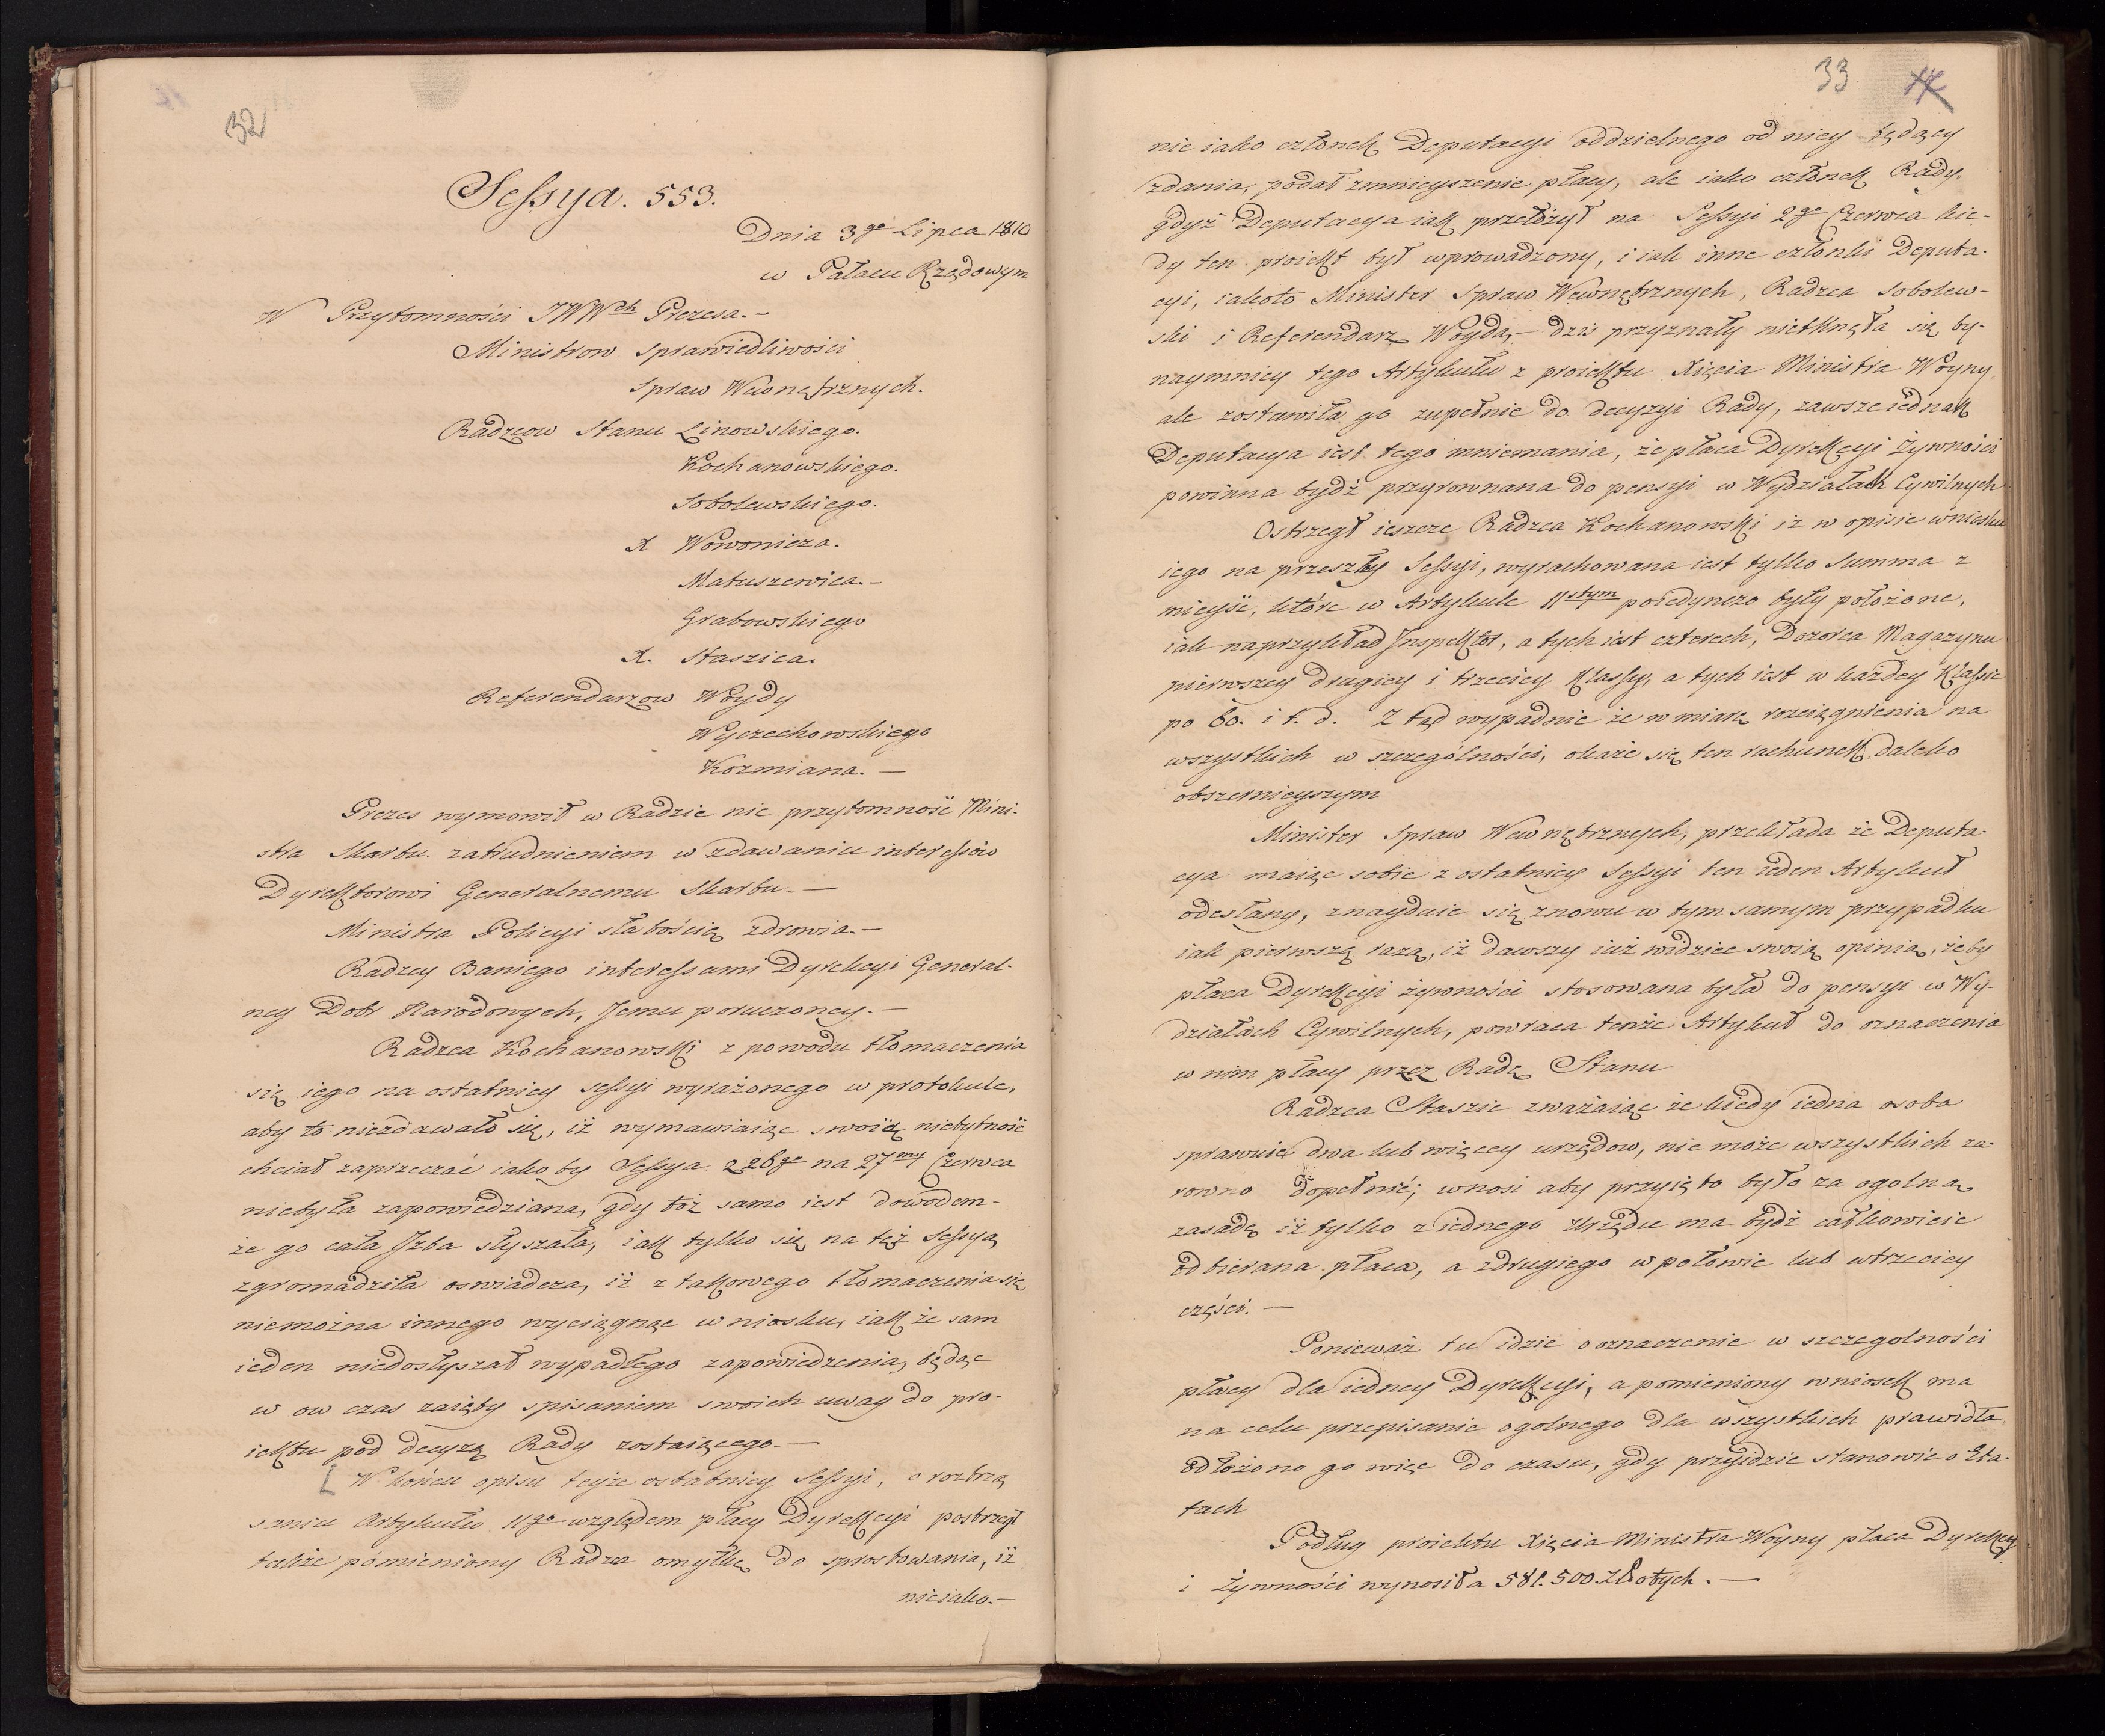 32
Sessya. 553.
Dnia 3go Lipca 1810
w Pałacu Rządowym
W Przytomności JWWch Prezesa. -
Ministrow Sprawiedliwości
Spraw Wewnętrznych.
Radzcow Stanu Linowskiego.
Kochanowskiego.
Sobolewskiego.
X Wowonicza.
Matuszewica. -
Grabowskiego
X. Staszica.
Referendarzow Woydy
Wyczechowskiego
Kozmiana. -
Prezes wymowił w Radzie nie przytomność Mini-
stra Skarbu zatrudnieniem w zdawaniu interessów
Dyrektorowi Generalnemu Skarbu. -
Ministra Policyi słabością zdrowia. -
Radzcy Baniego interessami Dyrekcyi General-
ney Dobr Narodowych, Jemu poruczoney. -
Radzca Kochanowski z powodu tłomaczenia
się iego na ostatniey sessyi wyrażonego w protokule,
aby to niezdawało się, iż wymawiaiąc swoią niebytność
chciał zaprzeczać iako by Sessya z 26go na 27my Czerwca
niebyła zapowiedziana, gdy toż samo iest dowodem-
że go cała Izba słyszała, iak tylko się na też Sessyą
zgromadziła oswiadcza, iż z takowego tłomaczenia się
niemożna innego wyciągnąc wniosku, iak że sam
ieden niedosłyszał wypadłego zapowiedzenia, będąc
w ow czas zaięty spisaniem swoich uwag do pro-
iektu pod decyzą Rady zostaiącego. -
W końcu opisu teyże ostatniey Sessyi, o roztrzą
saniu Artykułu 11go względem płacy Dyrekcyi postrzegł
także pomieniony Radzca omyłkę do sprostowania, iż
nieiako. -
33 17
nie iako członek Deputacyi oddzielnego od niey będący
zdania, podał zmnieyszenie płacy, ale iako członek Rady.
gdyż Deputacya iak przełożył na Sessyi 2go Czerwca kie-
dy ten proiekt był wprowadzony, i iak inne członki Deputa-
cyi, iakoto Minister Spraw Wewnętrznych, Radzca Sobolew-
ski i Referendarz Woyda, - dzis przyznały nietknęła się by-
naymniey tego Artykułu z proiektu Xięcia Ministra Woyny,
ale zostawiła go zupełnie do decyzyi Rady, zawsze iednak
Deputacya iest tego mniemania, że płaca Dyrekcyi Żywności
powinna bydź przyrownana do pensyi w Wydziałach Cywilnych
Ostrzegł ieszcze Radzca Kochanowski iż w opisie wniosku
iego na przeszłey Sessyi, wyrachowana iest tylko Summa z
mieysć, które w Artykule 11stym poiedynczo były położone,
iak naprzykład Inspektor, a tych iest czterech, Dozorca Magazynu
pierwszey drugiey i trzeciey Klassy, a tych iest w każdey Klassie
po 60. i t. d. Z tąd wypadnie że w miarę rozciągnienia na
wszystkich w szczególności, okaże się ten rachunek daleko
obszernieyszym
Minister Spraw Wewnętrznych, przekłada że Deputa-
cya maiąc sobie z ostatniey Sessyi ten ieden Artykuł
odesłany, znayduie się znowu w tym samym przypadku
iak pierwszą razą, iż dawszy iuż widziec swoią opinią, żeby
płaca Dyrekcyi żywności stosowana była do pensyi w Wy-
działach Cywilnych, powraca tenże Artykuł do oznaczenia
w nim płacy przez Radę Stanu
Radzca Staszic zważaiąc że kiedy iedna osoba
sprawuie dwa lub więcey urzędow, nie może wszystkich za-
rowno dopełnić; wnosi aby przyięto było za ogolną
zasadę iż tylko z iednego Urzędu ma bydź całkowicie
odbierana płaca, a zdrugiego w połowie lub wtrzeciey
części. -
Ponieważ tu idzie o oznaczenie w szczegolności
płacy dla iedney Dyrekcyi, a pomieniony wniosek ma
na celu przepisanie ogolnego dla wszystkich prawidła,
odłożono go więc do czasu, gdy przyidzie stanowic o Eta-
tach
Podług proiektu Xięcia Ministra Woyny płaca Dyrekcy
i Żywności wynosiła 581.500. Złotych. -